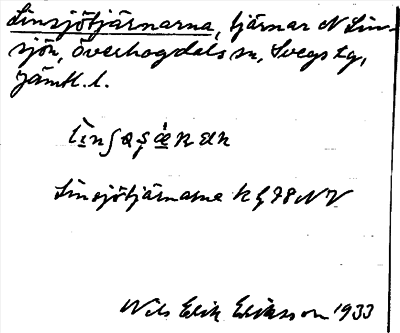 Linsjötjärnarna, tjärnar N Lin-
sjön, Överhogdals sn, Svegs tg,
Jämtl. l.
Linsjötjärnarna k G 78 NV
Nils Erik Eriksson 1933